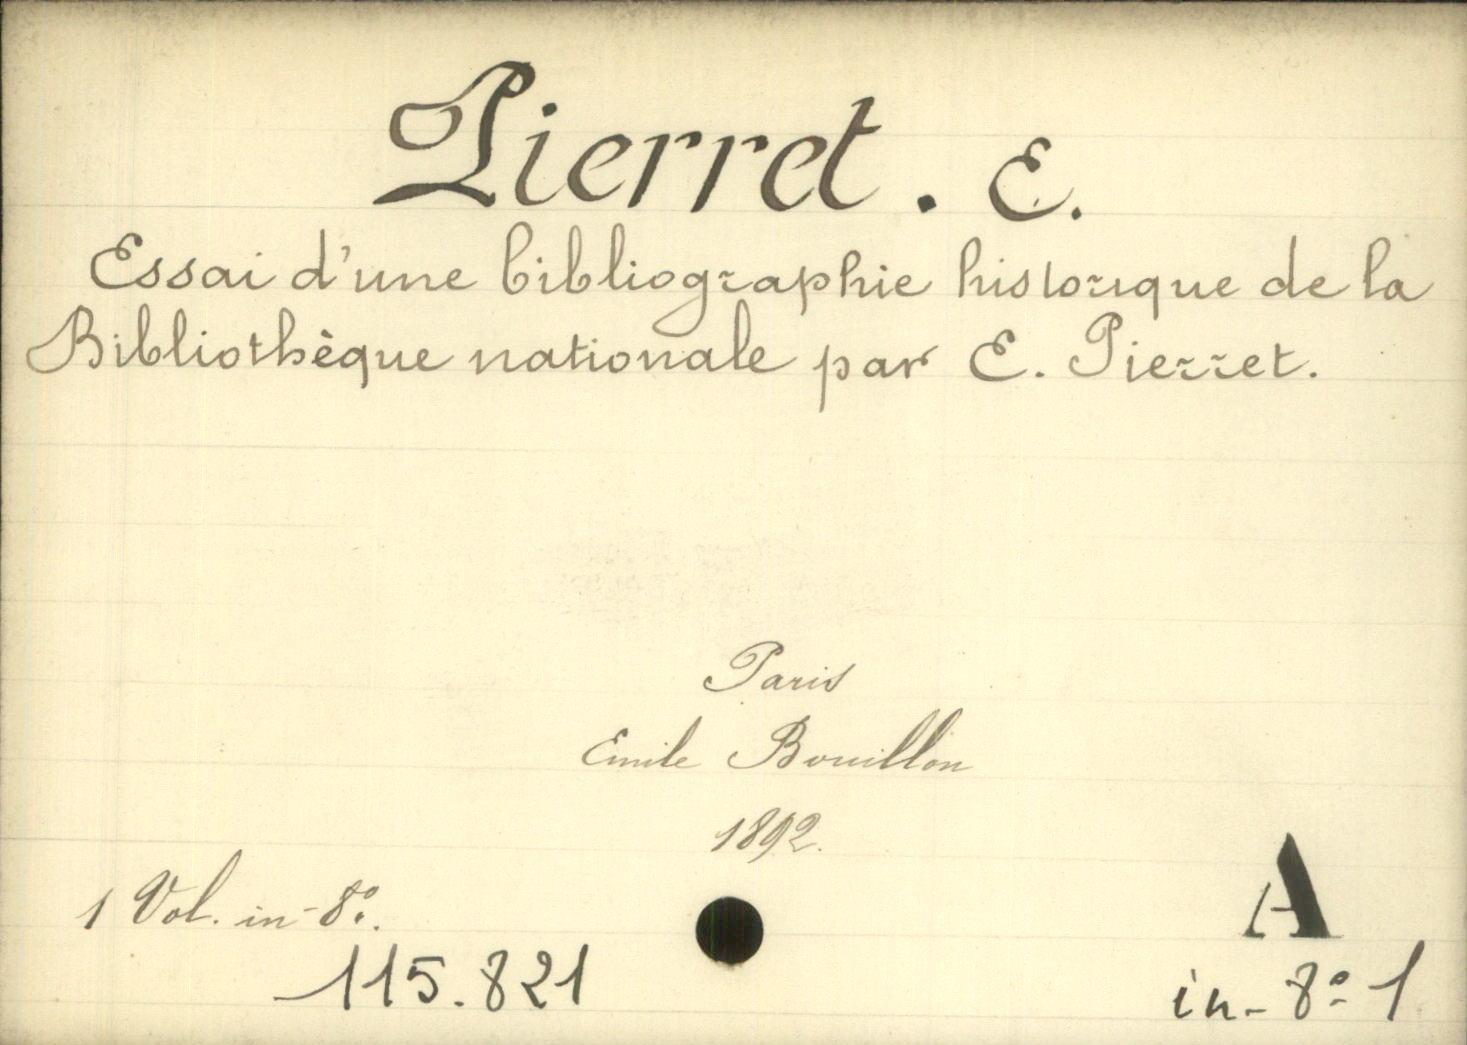 Pierret. E.
Essai d'une bibliographie historique de la
Bibliothèque nationale par E. Pierret.
Paris
Emile Bouillon
1892.
1 Vol. in-8º.
115.821
A
in-8º 1